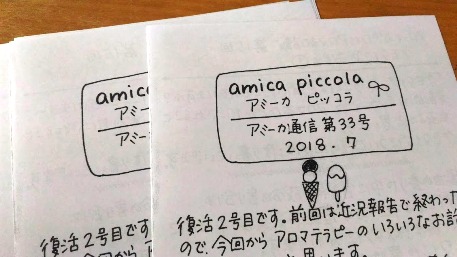 amica piccola
アミーカ ピッコラ
アミーカ通信 第33号
2018.7
復活2号目です。前回は近況報告で終わった
ので、今回から アロマテラピーのいろいろなお話
思います。
amica
アミーカ
アミー
復活2号目です
ので、今回か